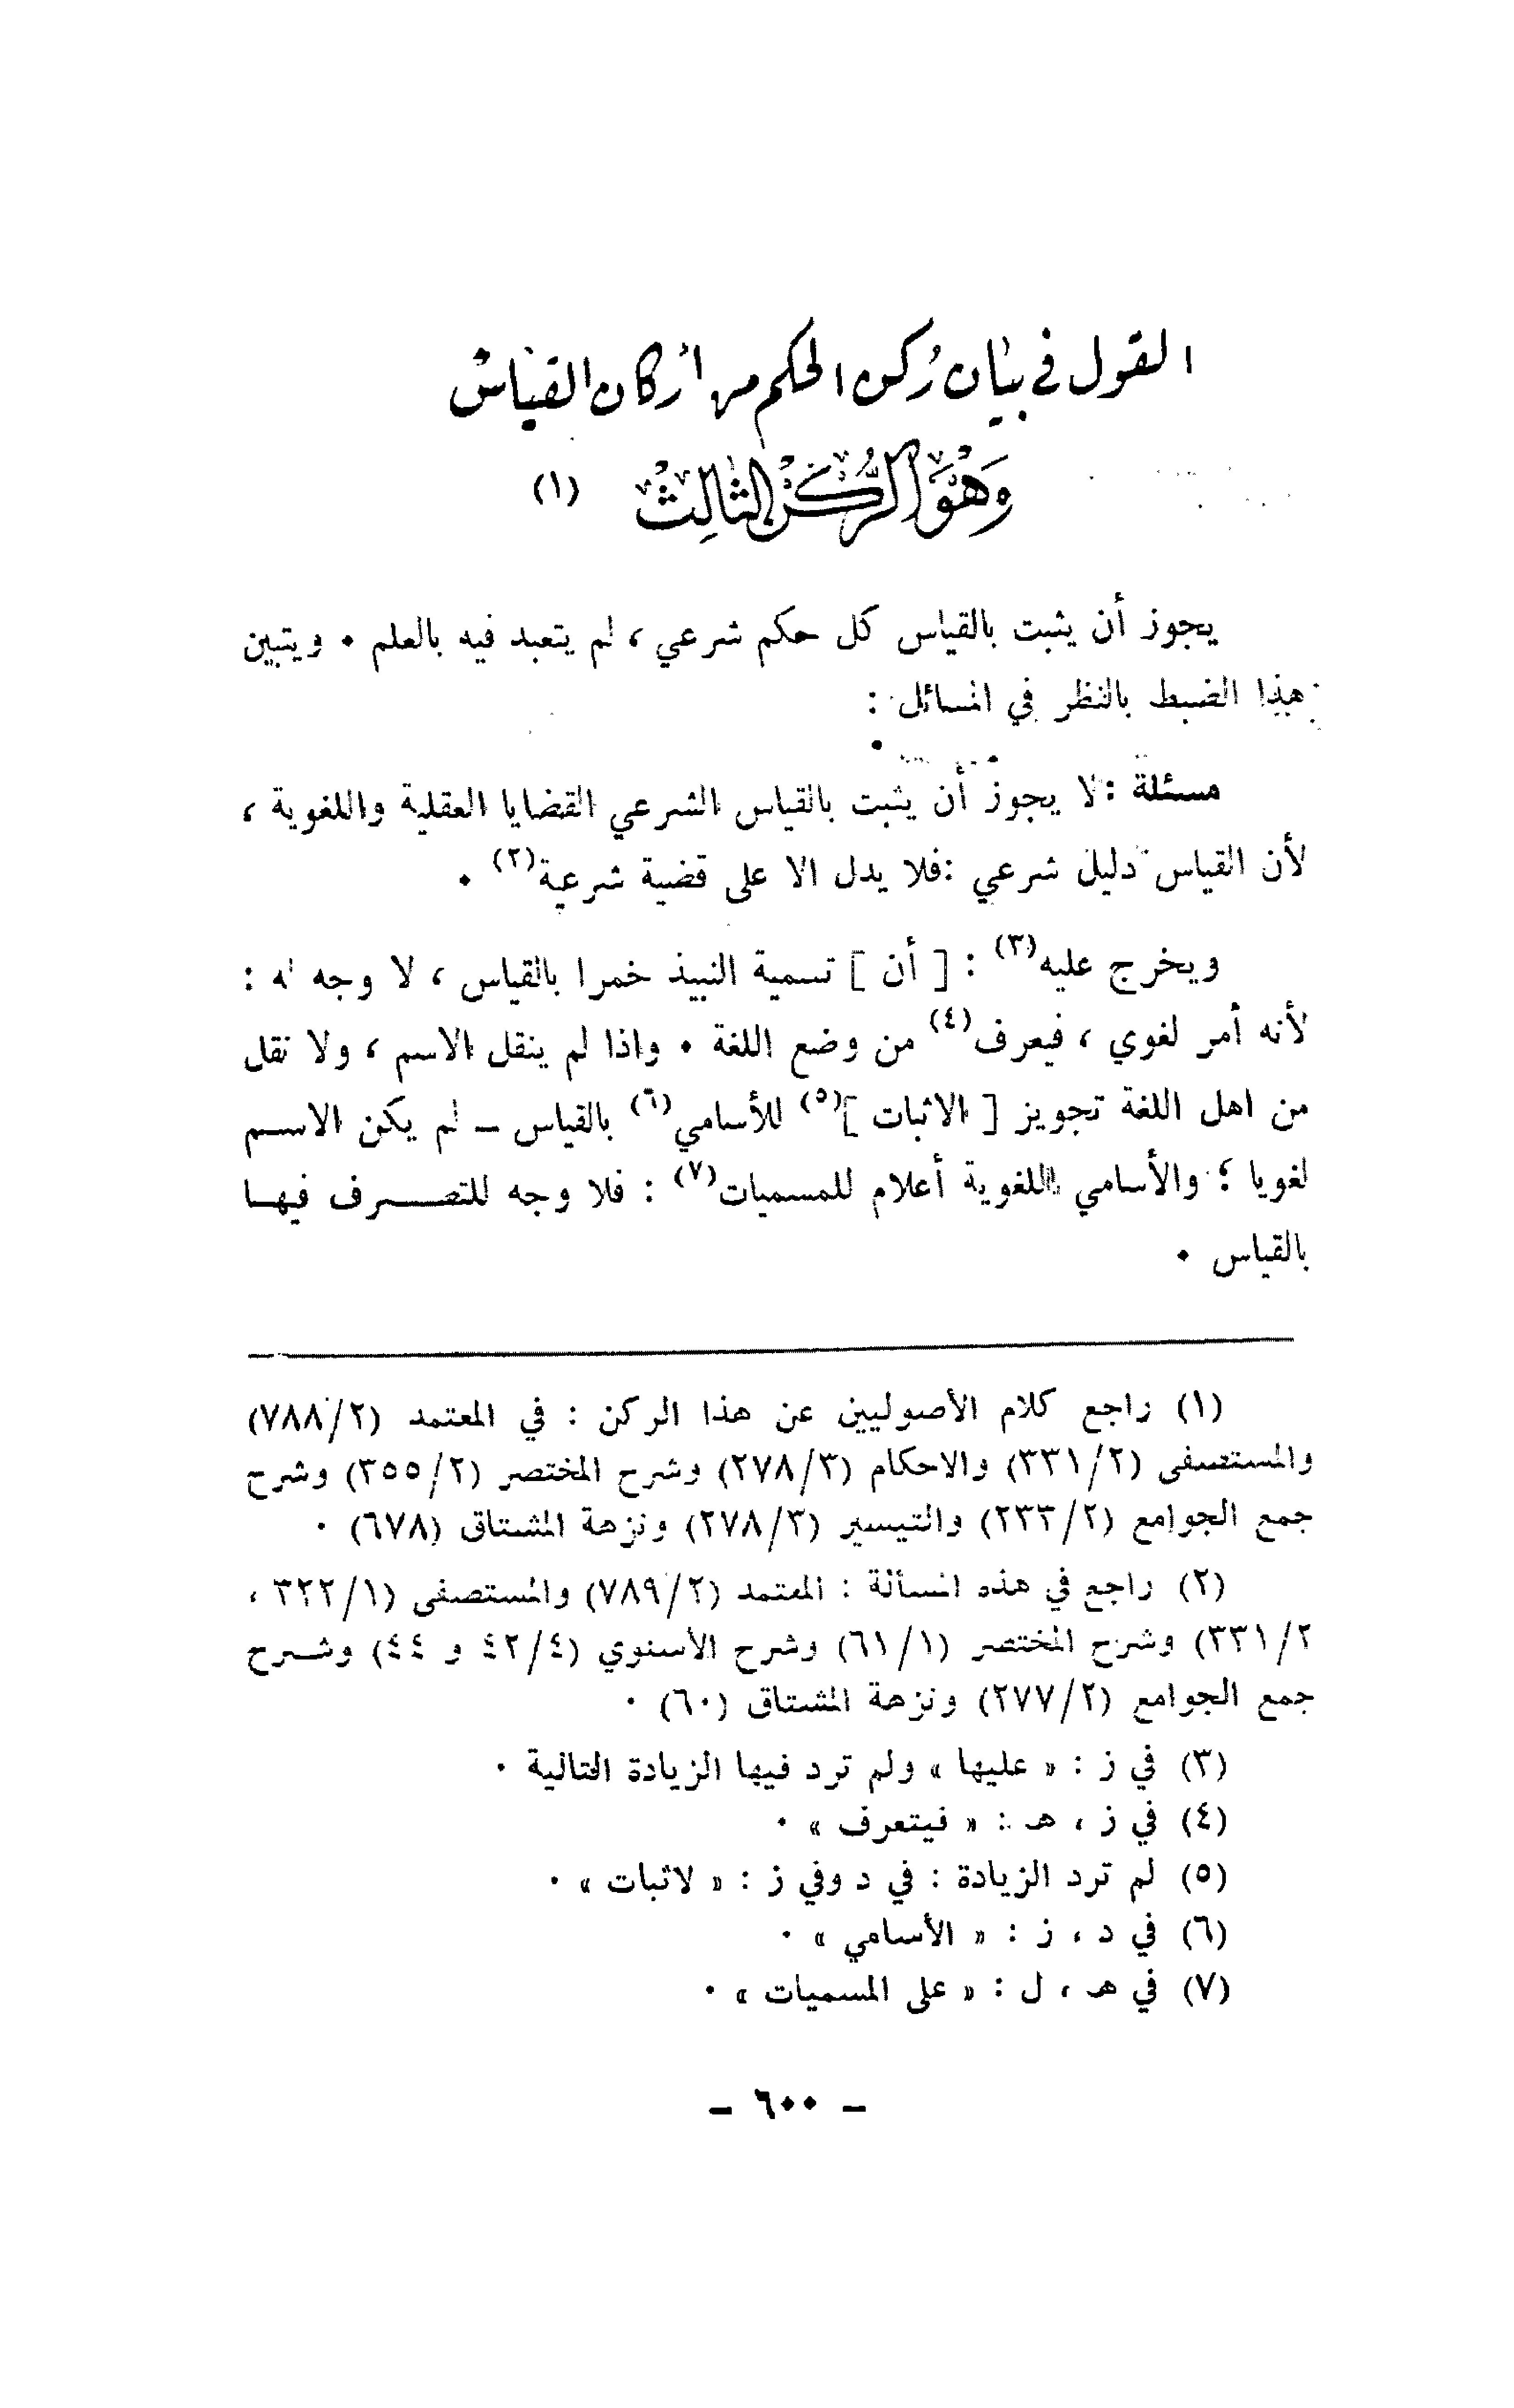 القول في بيان ركن الحكم من أركان القياس
وَهُوَ الرُّكْنُ الثَّالِثُ (١)
يجوز أن يثبت بالقياس كل حكم شرعي ، لم يتعبد فيه بالعلم ٠ ويتبين
هذا الضبط بالنظر في المسائل :
مسئلة : لا يجوز أن يثبت بالقياس الشرعي القضايا العقلية واللغوية ،
لأن القياس دليل شرعي : فلا يدل الا على قضية شرعية(٢) ٠
ويخرج عليه(٣) : [ أن ] تسمية النبيذ خمرا بالقياس ، لا وجه له :
لأنه أمر لغوي ، فيعرف(٤) من وضع اللغة ٠ واذا لم ينقل الاسم ، ولا نقل
من اهل اللغة تجويز [ الاثبات ](٥) للأسامي(٦) بالقياس – لم يكن الاسم
لغويا ؛ والأسامي اللغوية أعلام للمسميات(٧) : فلا وجه للتصرف فيها
بالقياس ٠
(١) راجع كلام الأصوليين عن هذا الركن : في المعتمد (٧٨٨/٢)
والمستصفى (٣٣١/٢) والاحكام (٢٧٨/٣) وشرح المختصر (٣٥٥/٢) وشرح
جمع الجوامع (٢٣٣/٢) والتيسير (٢٧٨/٣) ونزهة المشتاق (٦٧٨) ٠
(٢) راجع في هذه المسألة : المعتمد (٧٨٩/٢) والمستصفى (٣٢٢/١ ،
٣٣١/٢) وشرح المختصر (٦١/١) وشرح الأسنوي (٤٢/٤ و ٤٤) وشرح
جمع الجوامع (٢٧٧/٢) ونزهة المشتاق (٦٠) ٠
(٣) في ز : « عليها » ولم ترد فيها الزيادة التالية ٠
(٤) في ز ، هـ : « فيتعرف » ٠
(٥) لم ترد الزيادة : في د وفي ز : « لاثبات » ٠
(٦) في د ، ز : « الأسامي » ٠
(٧) في هـ ، ل : « على المسميات » ٠
– ٦٠٠ –